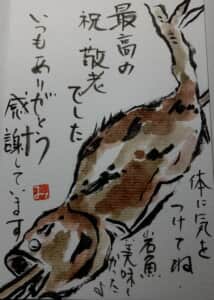 最高の
祝・敬老
でした
いつもありがとう
感謝しています
体に気を
つけてね
岩魚
美味し
かったよ